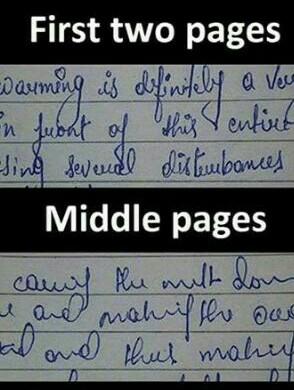 First two pages
warming is definitely a ver
in front of this entire
sing several disturbances
Middle pages
the melt down
and making the
and thus making